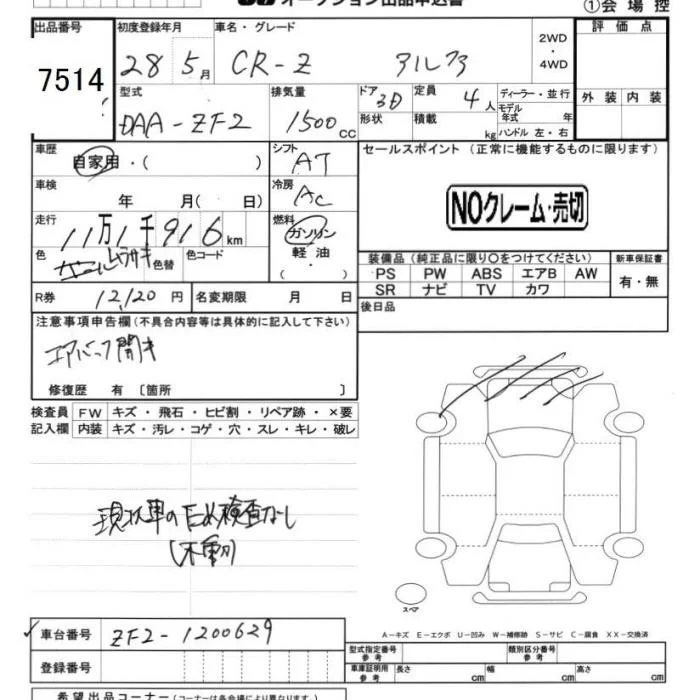 オークション出品申込書
①会場控
出品番号 初度登録年月 車名・グレード 評価点
7514 28 5月 CR-Z アルファ 2WD・4WD
外装 内装
型式 排気量 ドア 定員 ディーラー・並行
DAA-ZF2 1500cc 3D 4人 モデル年式 年
形状 積載 kg ハンドル 左・右
車歴 シフト セールスポイント(正常に機能するものに限ります)
自家用・( ) AT
車検 冷房
年 月(日) AC
NOクレーム・売切
走行 燃料
11万1千916km ガソリン・軽油・( )
色 ムラサキ 色替 色コード
装備品(純正品に限り○をつけてください) 新車保証書
PS PW ABS エアB AW 有・無
SR ナビ TV カワ
R券 12,120円 名変期限 月 日
後日品
注意事項申告欄(不具合内容等は具体的に記入して下さい)
エアバック開き
修復歴 有 〔箇所 〕
検査員 FW キズ・飛石・ヒビ割・リペア跡・×要
記入欄 内装 キズ・汚レ・コゲ・穴・スレ・キレ・破レ
現状車のため検査なし
(不動)
スペア
A-キズ E-エクボ U-凹み W-補修跡 S-サビ C-腐食 XX-交換済
車台番号 ZF2-1200629
型式指定番号 参考 類別区分番号 参考
登録番号
車庫証明用 参考 長さ cm 幅 cm 高さ cm
希望出品コーナー(コーナーは各会場により異なります)